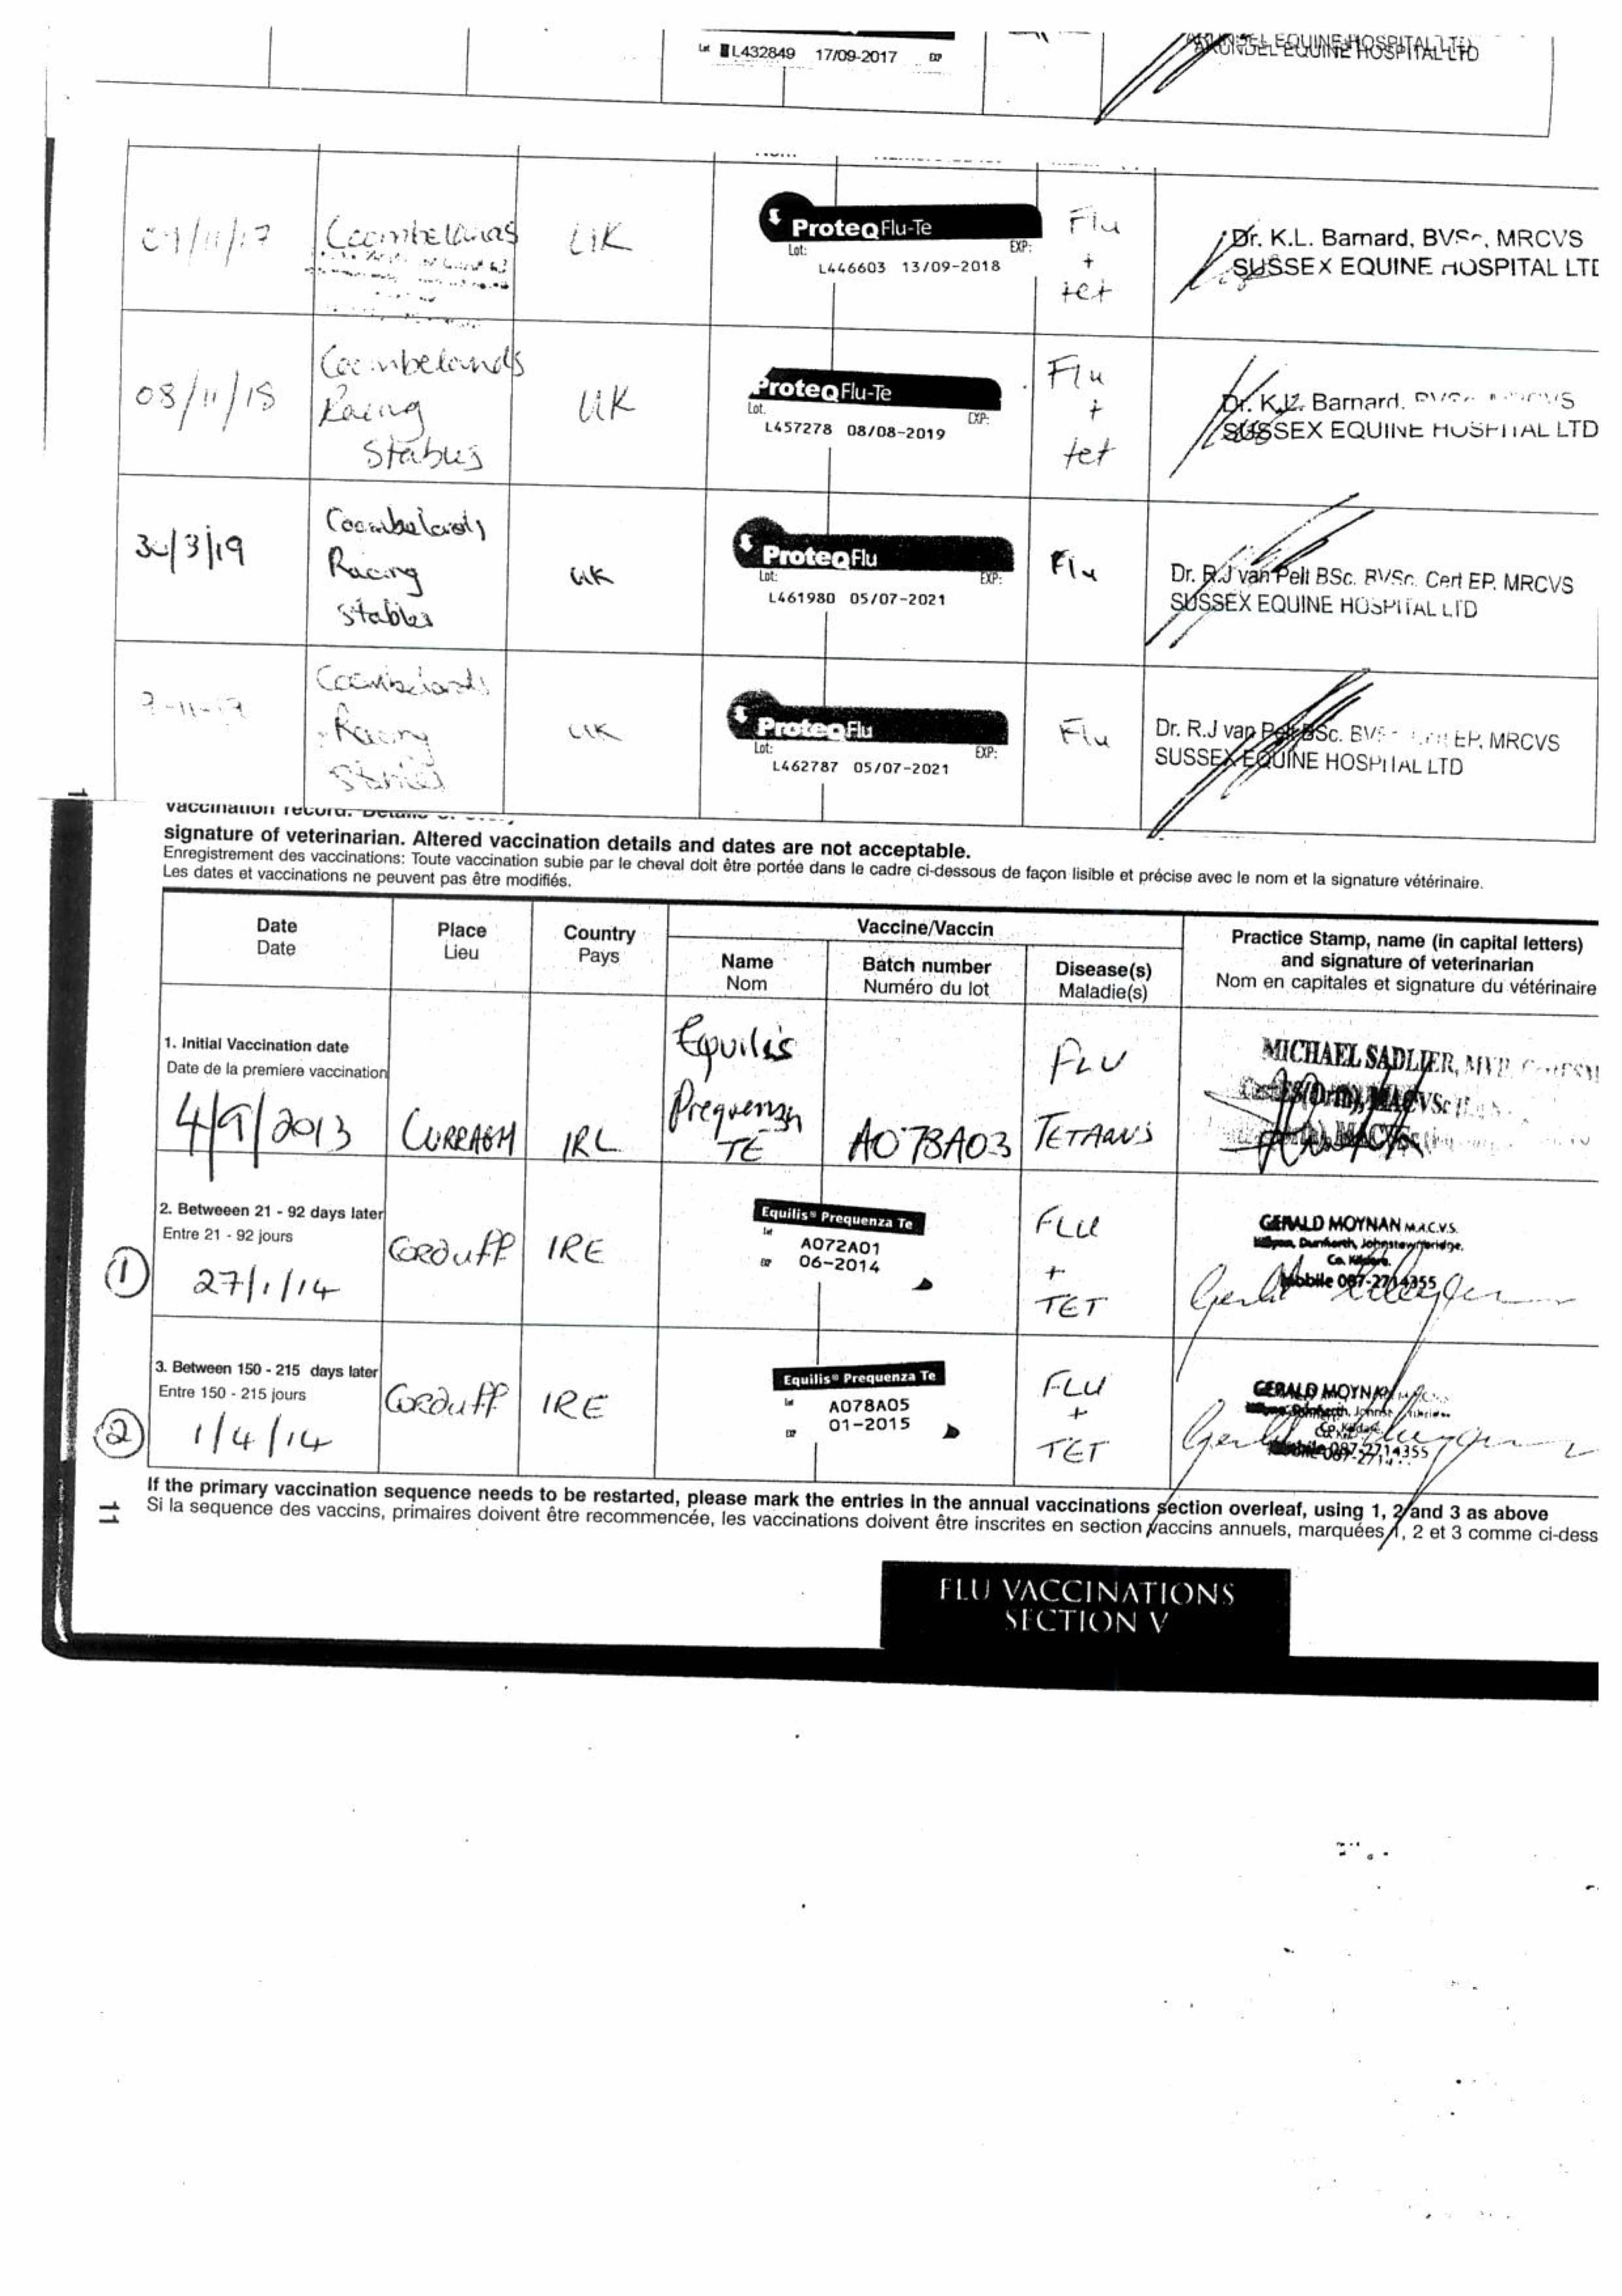 Lot L432849 17/09-2017 EXP
ARUNDEL EQUINE HOSPITAL LTD
ARUNDEL EQUINE HOSPITAL LTD
/11/17
UK
ProteqFlu-Te
Lot: EXP:
L446603 13/09-2018
Flu
+
tet
Dr. K.L. Barnard, BVSc, MRCVS
SUSSEX EQUINE HOSPITAL LTD
08/11/18
Coombelands
Racing
Stables
UK
ProteqFlu-Te
Lot. EXP:
L457278 08/08-2019
Flu
+
tet
Dr. K.L. Barnard,
SUSSEX EQUINE HOSPITAL LTD
30/3/19
Coombelands
Racing
Stables
UK
ProteqFlu
Lot: EXP:
L461980 05/07-2021
Flu
Dr. R.J van Pelt BSc. BVSc. Cert EP. MRCVS
SUSSEX EQUINE HOSPITAL LTD
Coombelands
Racing
UK
ProteqFlu
Lot: EXP:
L462787 05/07-2021
Flu
Dr. R.J van Pelt BSc. EP. MRCVS
SUSSEX EQUINE HOSPITAL LTD
vaccination record.
signature of veterinarian. Altered vaccination details and dates are not acceptable.
Enregistrement des vaccinations: Toute vaccination subie par le cheval doit être portée dans le cadre ci-dessous de façon lisible et précise avec le nom et la signature vétérinaire.
Les dates et vaccinations ne peuvent pas être modifiés.
Date
Date
Place
Lieu
Country
Pays
Vaccine/Vaccin
Name
Nom
Batch number
Numéro du lot
Disease(s)
Maladie(s)
Practice Stamp, name (in capital letters)
and signature of veterinarian
Nom en capitales et signature du vétérinaire
1. Initial Vaccination date
Date de la premiere vaccination
4/9/2013
CURRAGH
IRL
Equilis
Prequenza
TE
A078A03
FLU
TETANUS
MICHAEL SADLIER, MVB,
2. Betweeen 21 - 92 days later
Entre 21 - 92 jours
1
27/1/14
CORDUFF
IRE
Equilis® Prequenza Te
Lot
A072A01
EXP 06-2014
FLU
+
TET
GERALD MOYNAN M.A.C.V.S.
Co. Kildare.
Mobile 087-2714355
3. Between 150 - 215 days later
Entre 150 - 215 jours
2
1/4/14
CORDUFF
IRE
Equilis® Prequenza Te
Lot A078A05
EXP 01-2015
FLU
+
TET
GERALD MOYNAN
Co. Kildare.
Mobile 087-2714355
If the primary vaccination sequence needs to be restarted, please mark the entries in the annual vaccinations section overleaf, using 1, 2 and 3 as above
Si la sequence des vaccins, primaires doivent être recommencée, les vaccinations doivent être inscrites en section vaccins annuels, marquées 1, 2 et 3 comme ci-dess
11
FLU VACCINATIONS
SECTION V